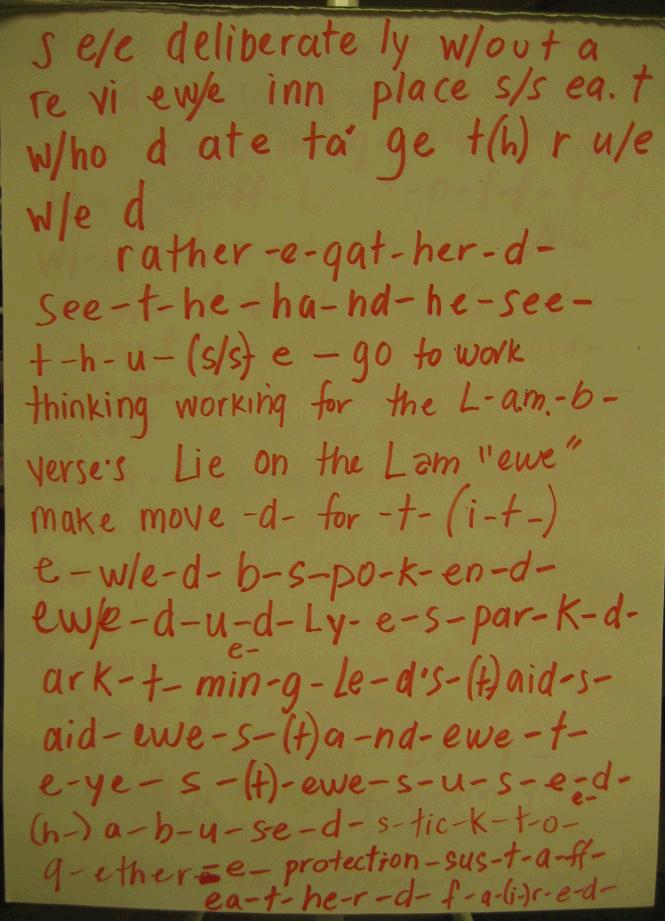 s e/e deliberate ly w/out a
re vi ew/e inn place s/s ea. t
w/ho d ate ta' ge t(h) r u/e
w/e d
rather -e-gat-her-d-
see-t-he-ha-nd-he-see-
t-h-u-(s/s) e - go to work
thinking working for the L-am.-b-
verse's Lie on the Lam "ewe"
make move -d- for -t- (i-t-)
e-w/e-d- b-s-po-k-en-d-
ew/e-d-u-d-Ly- e-s-par-K-d-
e-
ark-t- min-g-Le-d's-(t)aid-s-
aid-ewe-s-(t)a-nd-ewe-t-
e-ye-s-(t)-ewe-s-u-s-e-d-
e-
(h-) a-b-u-se-d- s-tic-k-t-o-
g-ether=e- protection-sus-t-a-ff-
ea-t-he-r-d-f-a-(i-)r-e-d-